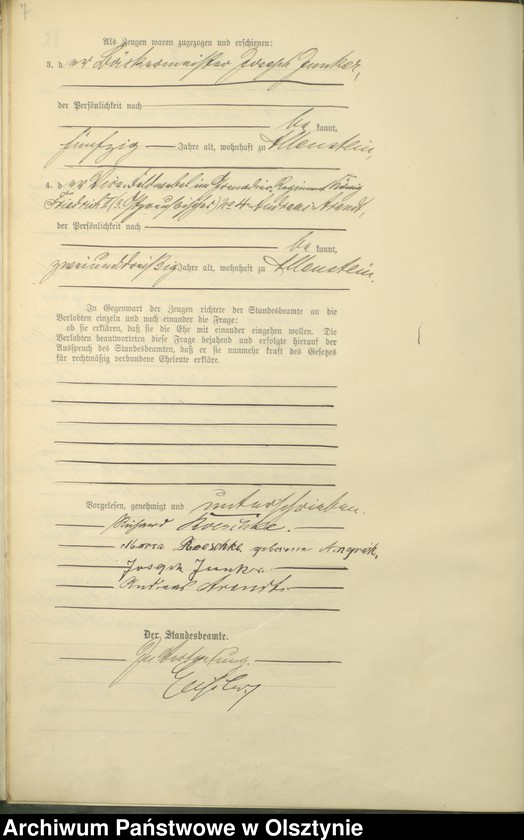 7
Als Zeugen waren zugezogen und erschienen:
3. d er Bäckermeister Joseph Junker,
der Persönlichkeit nach
be kannt,
fünfzig Jahre alt, wohnhaft zu Allenstein,
4. d er Vicefeldwebel im Grenadier Regiment König
Friedrich (Ostpreußisches) No 4 Andreas Arendt,
der Persönlichkeit nach
be kannt,
zweiunddreißig Jahre alt, wohnhaft zu Allenstein.
In Gegenwart der Zeugen richtete der Standesbeamte an die
Verlobten einzeln und nach einander die Frage:
ob sie erklären, daß sie die Ehe mit einander eingehen wollen. Die
Verlobten beantworteten diese Frage bejahend und erfolgte hierauf der
Ausspruch des Standesbeamten, daß er sie nunmehr kraft des Gesetzes
für rechtmäßig verbundene Eheleute erkläre.
Vorgelesen, genehmigt und unterschrieben.
Richard Roeschke.
Maria Roeschke geborene
Joseph Junker
Andreas Arendt
Der Standesbeamte.
In Vertretung.
Archiwum Państwowe w Olsztynie